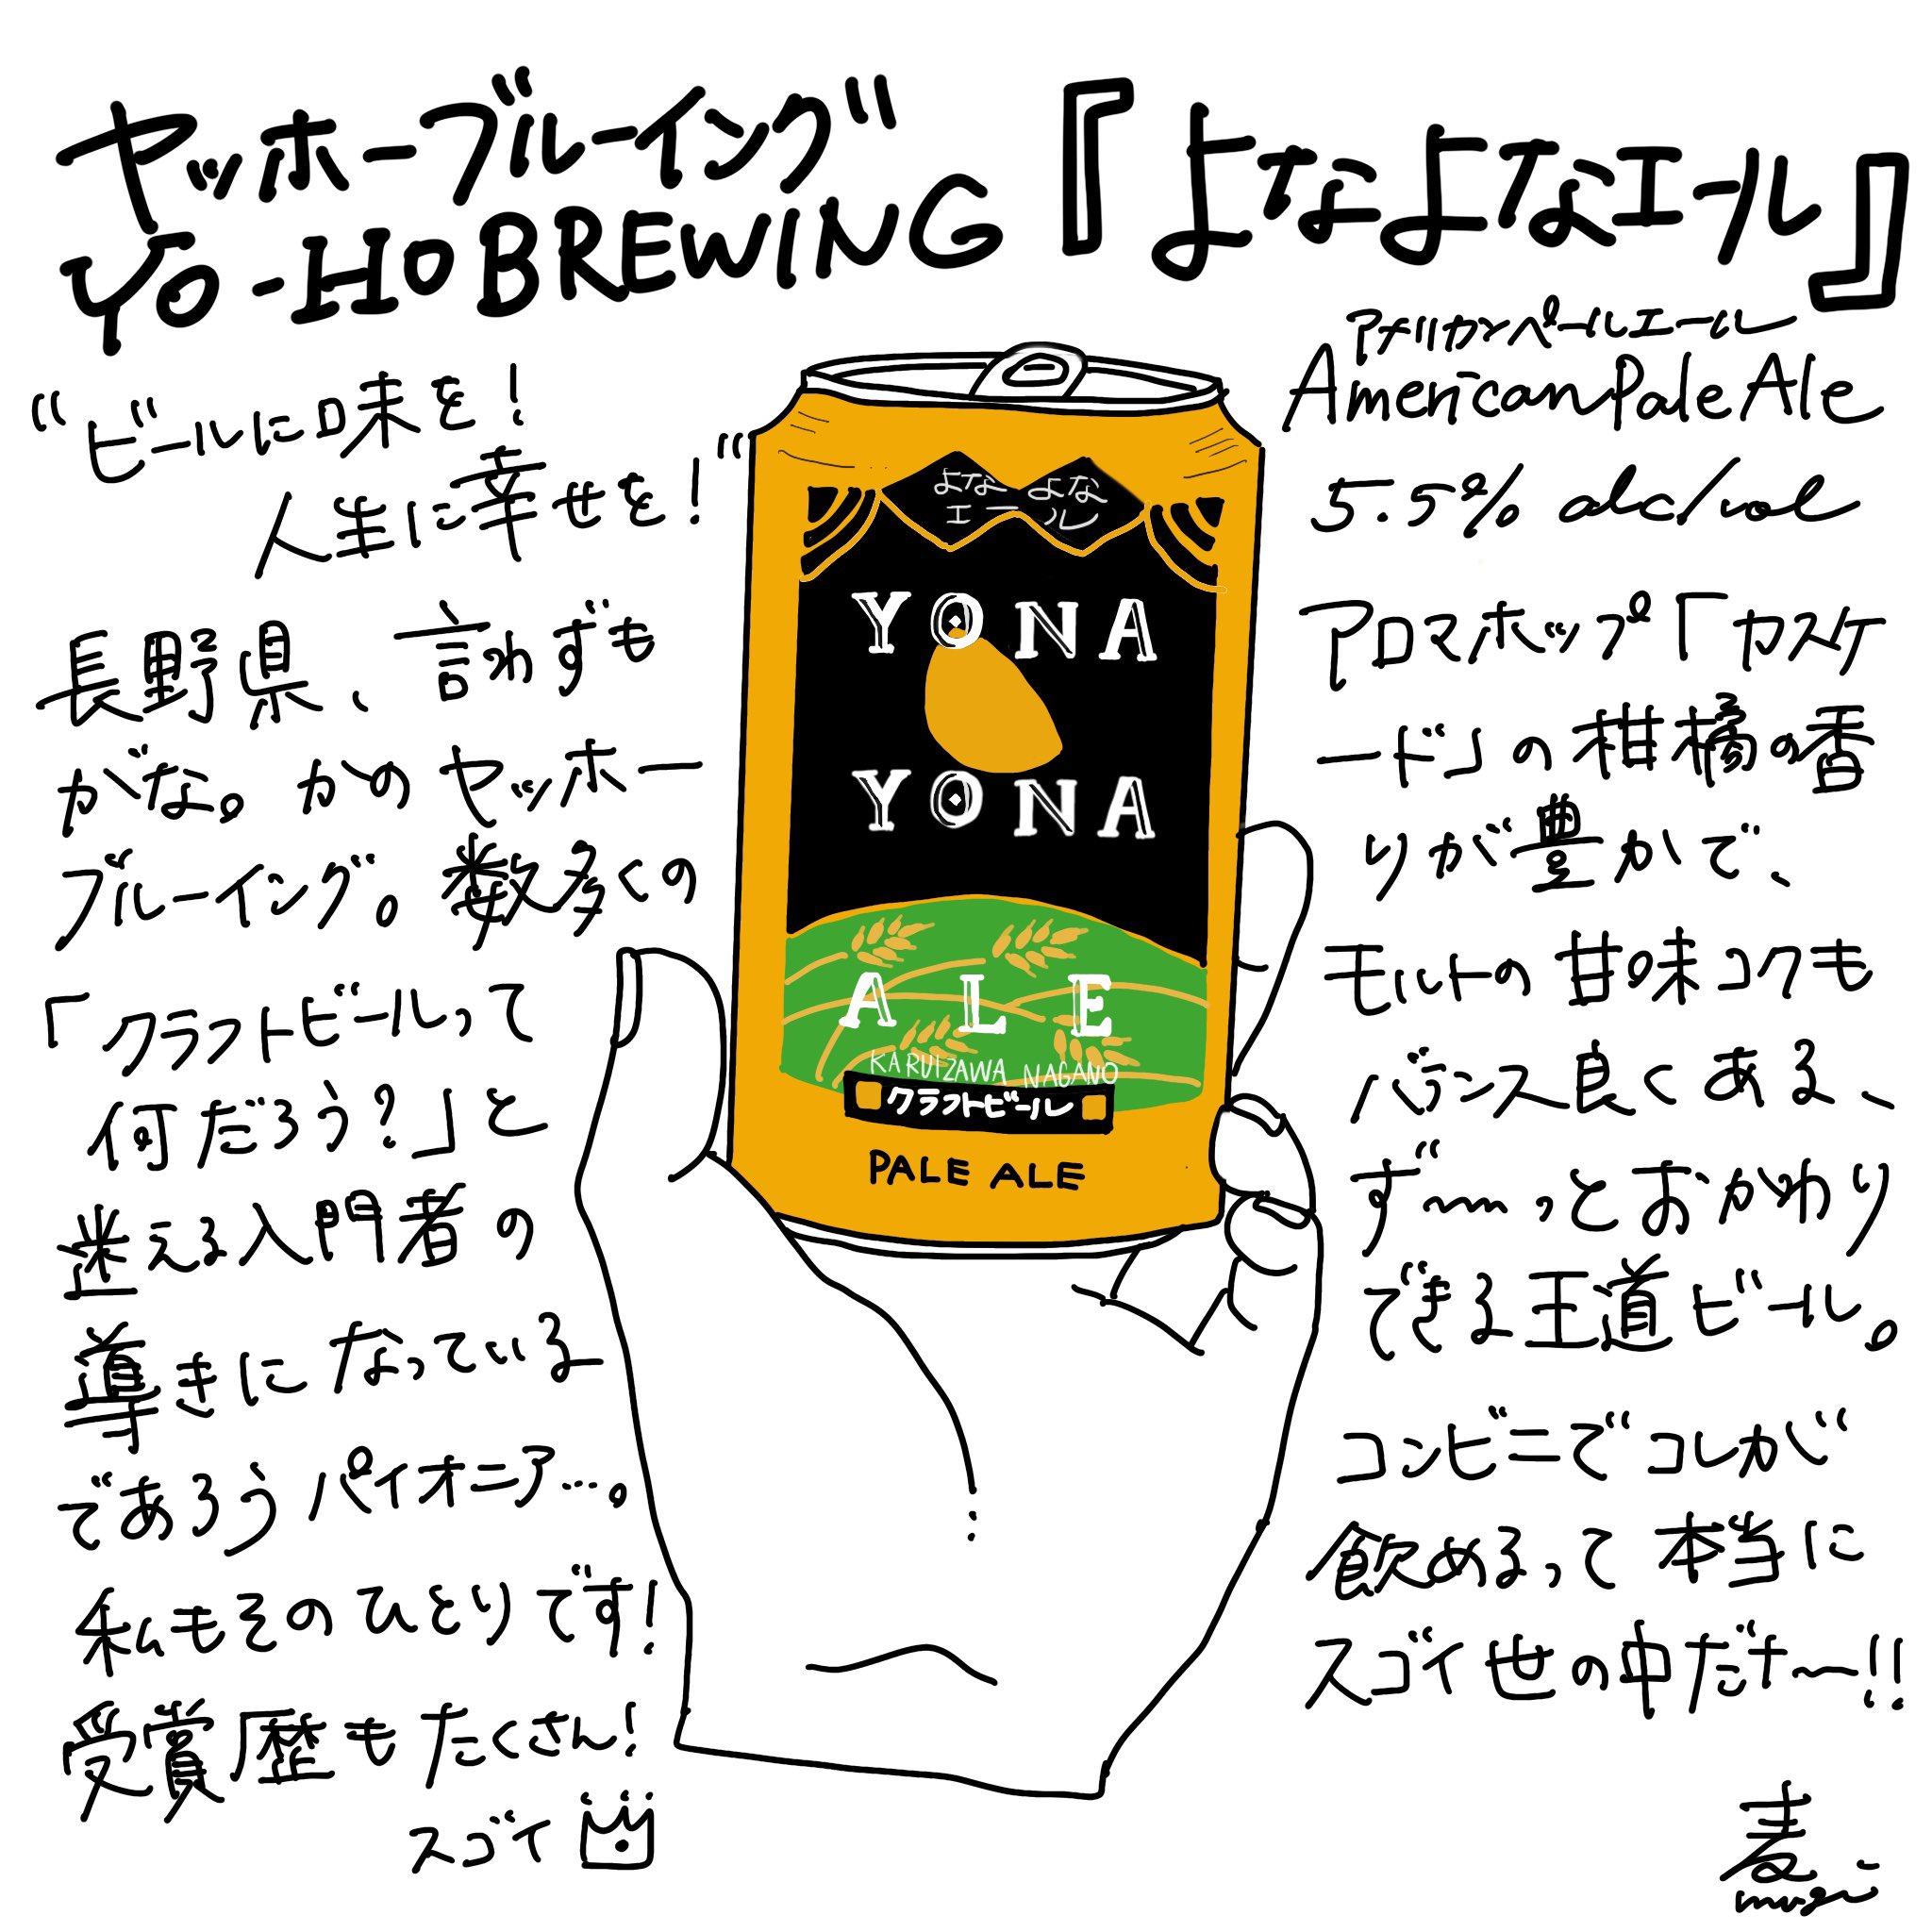 ヤッホーブルーイング
YO-HO BREWING
『よなよなエール』
アメリカンペールエール
American Pale Ale
5.5% alc/vol
"ビールに味を!
人生に幸せを!"
長野県、言わずも
がな。かのヤッホー
ブルーイング。数多くの
「クラフトビールって
何だろう?」と
迷える入門者の
導きになっている
であろうパイオニア…。
私もそのひとりです!
受賞歴もたくさん!
スゴイ
よなよな
エール
YONA
YONA
ALE
KARUIZAWA NAGANO
クラフトビール
PALE ALE
アロマホップ「カスケ
ード」の柑橘の香
りが豊かで、
モルトの甘味コクも
バランス良くある、
ず〜〜っとおかわり
できる王道ビール。
コンビニでコレが
飲めるって本当に
スゴイ世の中だナ〜!!
麦
mugi